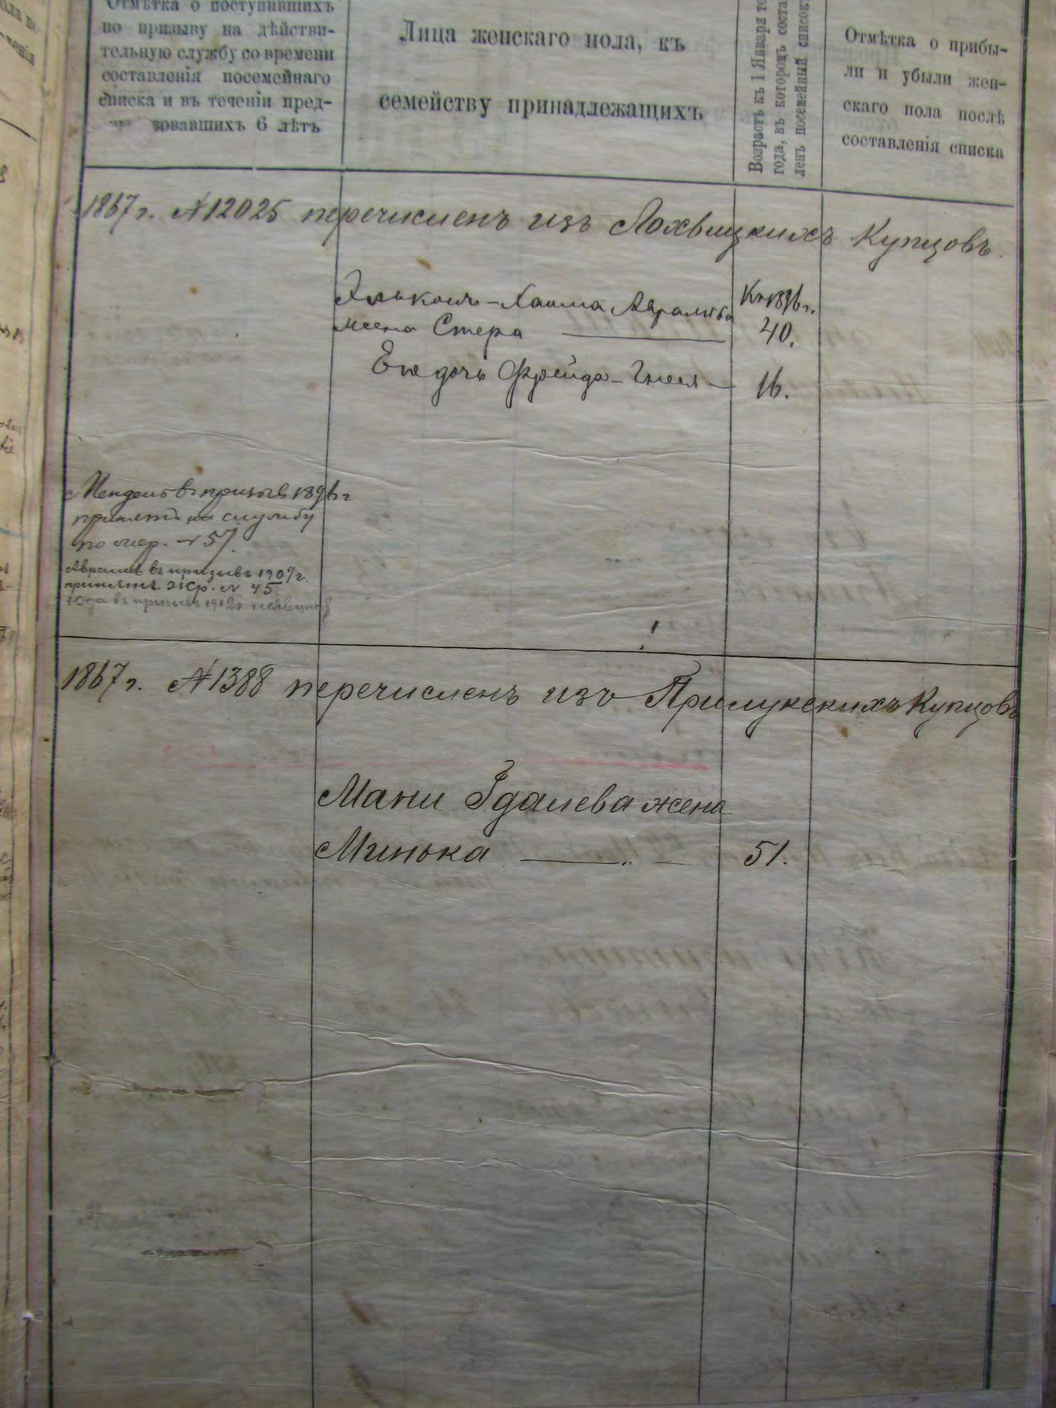 Отмѣтка о поступившихъ
по призыву на дѣйстви-
тельную службу со времени
составленія посемейнаго
списка и въ теченіи пред-
вовавшихъ 6 лѣтъ
Лица женскаго пола, къ
семейству принадлежащихъ
Возрастъ къ 1 Января
года, въ которомъ
ленъ посемейный
Отмѣтка о прибы-
ли и убыли жен-
скаго пола послѣ
составленія списка
1867 г. N 12025 перечисленъ изъ Лохвицкихъ Купцовъ.
Хаима
жена Стера 40.
Его дочь Фрейда 16.
Къ 1896 г.
Мендель въ призывъ 1896 г
принятъ на службу
по N 57.
Аврамъ въ призывъ 1909 г.
принятъ N 45
въ призывъ 1912
1867 г. N 1388 перечисленъ изъ Прилукскихъ Купцовъ
Мани Гдалева жена
Минька — „ — 51.